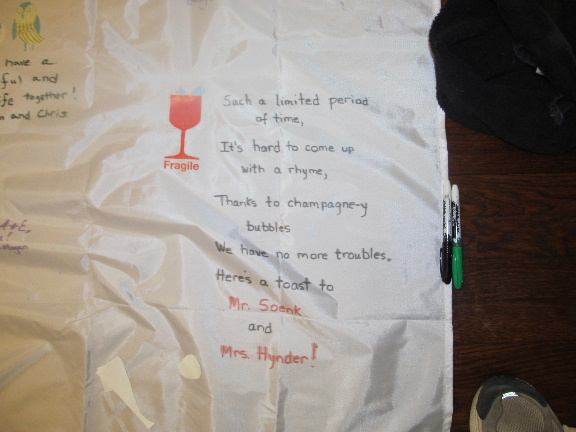 have a
ful and
ife together!
and Chris
Fragile
Such a limited period
of time,
It's hard to come up
with a rhyme,
Thanks to champagne-y
bubbles
We have no more troubles.
Here's a toast to
Mr. Soenk
and
Mrs. Hynder!